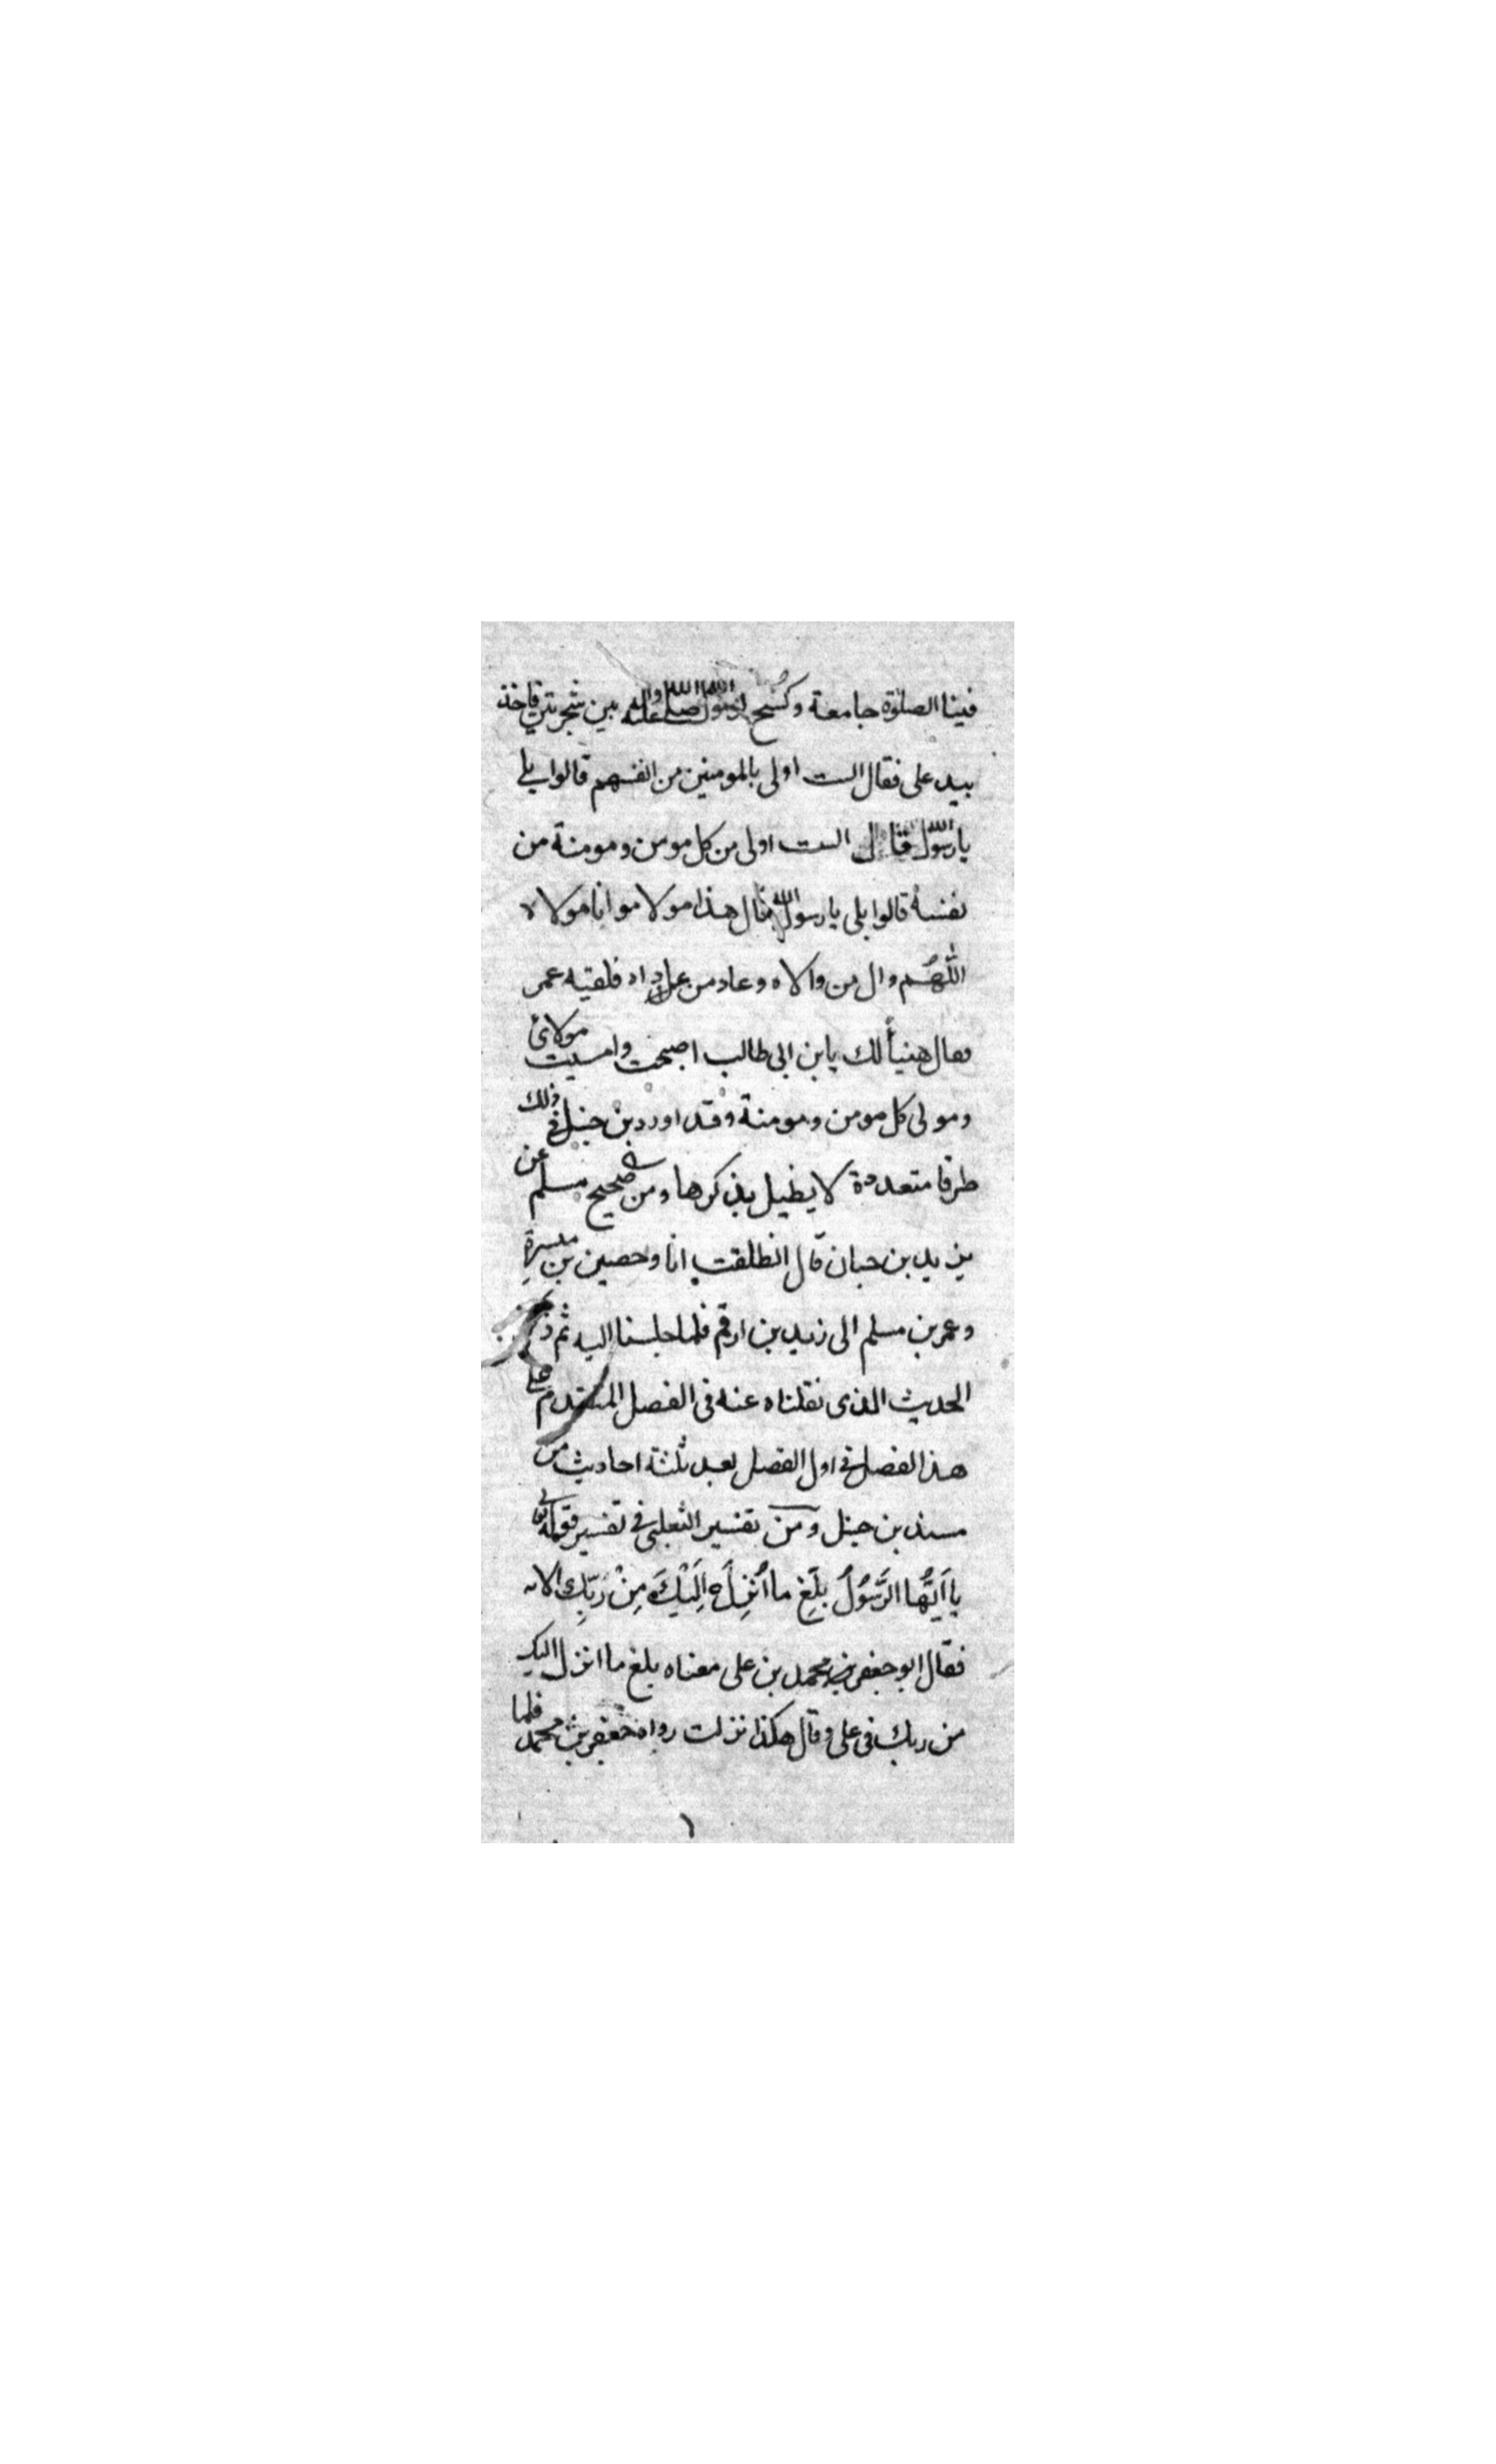 فينا الصلوة جامعة وكسح لرسول الله صلى الله عليه واله بين شجرتين فاخذ
بيد على فقال الست اولى بالمومنين من انفسهم قالوا بلى
يا رسول الله قال الست اولى من كل مومن ومومنة من
نفسه قالوا بلى يا رسول الله فقال هذا مولا موانا مولاه
اللهُم وال من والاه وعاد من عاداه فلقيه عمر
فقال هنيأ لك يابن ابى طالب اصبحت وامسيت مولاى
ومولى كل مومن ومومنة وقد اورد بن حنبل فى ذلك
طرقا متعددة لا يطيل بذكرها ومن صحيح مسلم عن
يزيد بن حبان قال انطلقت انا وحصين بن ميسرة
وعمر بن مسلم الى زيد بن ارقم فلما جلسنا اليه ثم ذكر
الحديث الذى نقلناه عنه فى الفصل المتقدم على
هذا الفصل فى اول الفصل بعد ثلثة احاديث من
مسند بن حنبل ومن تفسير الثعلبى فى تفسير قوله تعالى
يا اَيُّها الرَّسُولُ بلِّغ ما اُنْزِلَ اِلَيْكَ مِنْ رَبِّكِ الايه
فقال ابو جعفر محمد بن على معناه بلغ ما انزل اليك
من ربك فى على وقال هكذا نزلت رواه جعفر بن محمد فلما